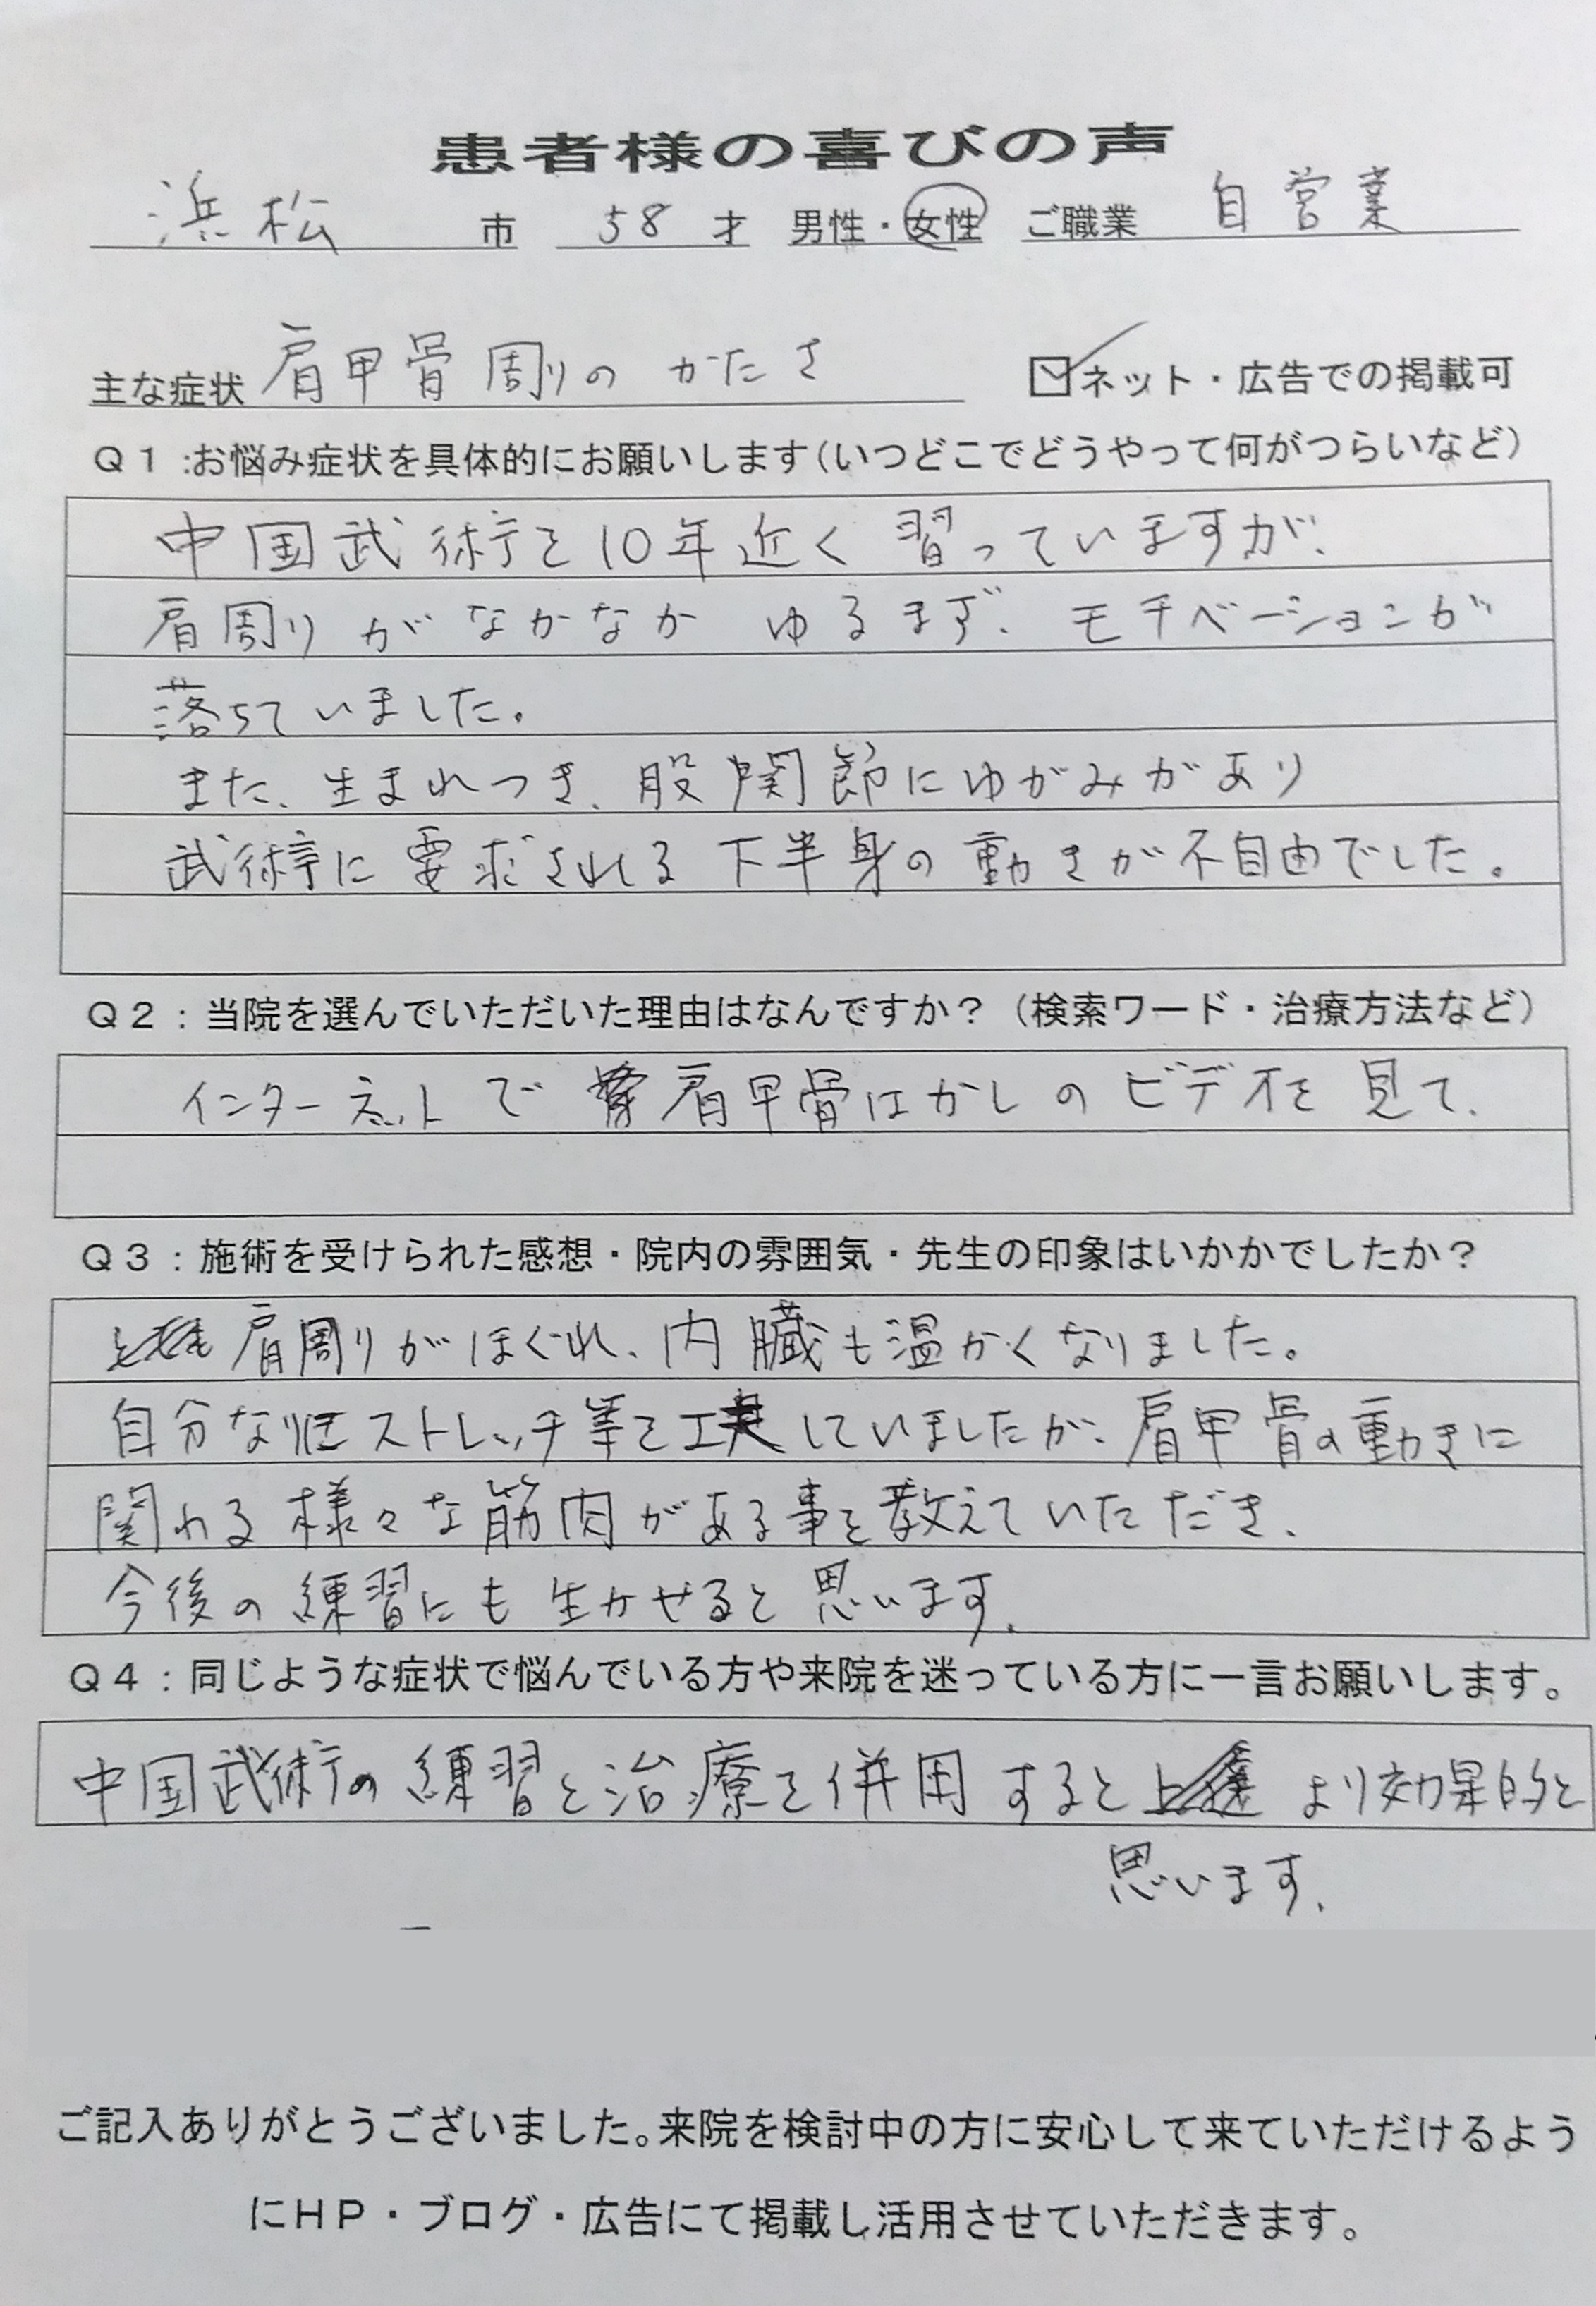 患者様の喜びの声
浜松 市 58 才 男性・女性 ご職業 自営業
主な症状 肩甲骨周りのかたさ ☑ネット・広告での掲載可
Q1:お悩み症状を具体的にお願いします(いつどこでどうやって何がつらいなど)
中国武術を10年近く習っていますが、
肩周りがなかなかゆるまず、モチベーションが
落ちていました。
また、生まれつき、股関節にゆがみがあり
武術に要求される下半身の動きが不自由でした。
Q2:当院を選んでいただいた理由はなんですか?(検索ワード・治療方法など)
インターネットで肩甲骨はがしのビデオを見て、
Q3:施術を受けられた感想・院内の雰囲気・先生の印象はいかかでしたか?
肩周りがほぐれ、内臓も温かくなりました。
自分なりにストレッチ等を工夫していましたが、肩甲骨の動きに
関わる様々な筋肉がある事を教えていただき、
今後の練習にも生かせると思います。
Q4:同じような症状で悩んでいる方や来院を迷っている方に一言お願いします。
中国武術の練習と治療を併用するとより効果的と
思います。
ご記入ありがとうございました。来院を検討中の方に安心して来ていただけるよう
にHP・ブログ・広告にて掲載し活用させていただきます。